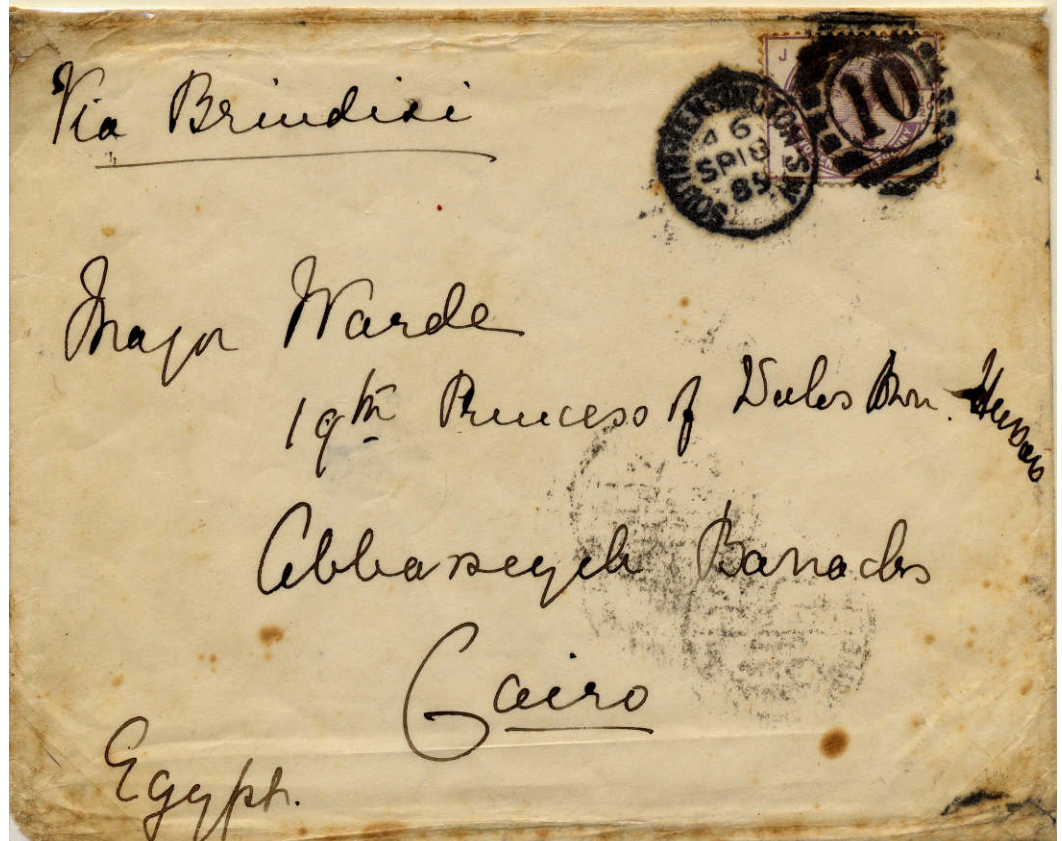 Via Brindisi
SOUTH KENSINGTON S.W.
A 6
SP 18
85
10
J
Major Warde
19th Princess of Wales Own Hussars
Abbasseyeh Barracks
Cairo
Egypt.